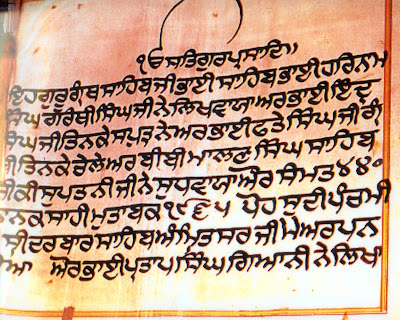 ੴ ਸਤਿਗੁਰਪ੍ਰਸਾਦਿ॥
ਇਹ ਗੁਰੂ ਗ੍ਰੰਥ ਸਾਹਿਬ ਜੀ ਭਾਈ ਸਾਹਿਬ ਭਾਈ ਹਰਿਨਾਮ
ਸਿੰਘ ਗ੍ਰੰਥੀ ਸਿੰਘ ਜੀ ਨੇ ਲਿਖਵਾਯਾ ਅਰ ਭਾਈ ਇੰਦ੍ਰ
ਸਿੰਘ ਜੀ ਤਿਨਕੇ ਸਪੁਤ੍ਰ ਨੇ ਅਰ ਭਾਈ ਫਤੇ ਸਿੰਘ ਜੀ
ਜੀ ਤਿਨਕੇ ਚੇਲੇ ਅਰ ਬੀਬੀ ਮਾਲਣ ਸਿੰਘ ਸਾਹਿਬ
ਜੀ ਕੀ ਸੁਪਤਨੀ ਜੀ ਨੇ ਸੁਧਵਾਯਾ ਔਰ ਸੰਮਤ ੪੪੦
ਨਾਨਕ ਸਾਹੀ ਮੁਤਾਬਕ ੧੯੬੫ ਪੋਹ ਸੁਦੀ ਪੰਚਮੀ
ਸ੍ਰੀ ਦਰਬਾਰ ਸਾਹਿਬ ਅੰਮ੍ਰਿਤਸਰ ਜੀ ਮੇ ਅਰਪਨ
ਕੀਆ ਔਰ ਭਾਈ ਪ੍ਰਤਾਪ ਸਿੰਘ ਗਿਆਨੀ ਨੇ ਲਿਖਾ